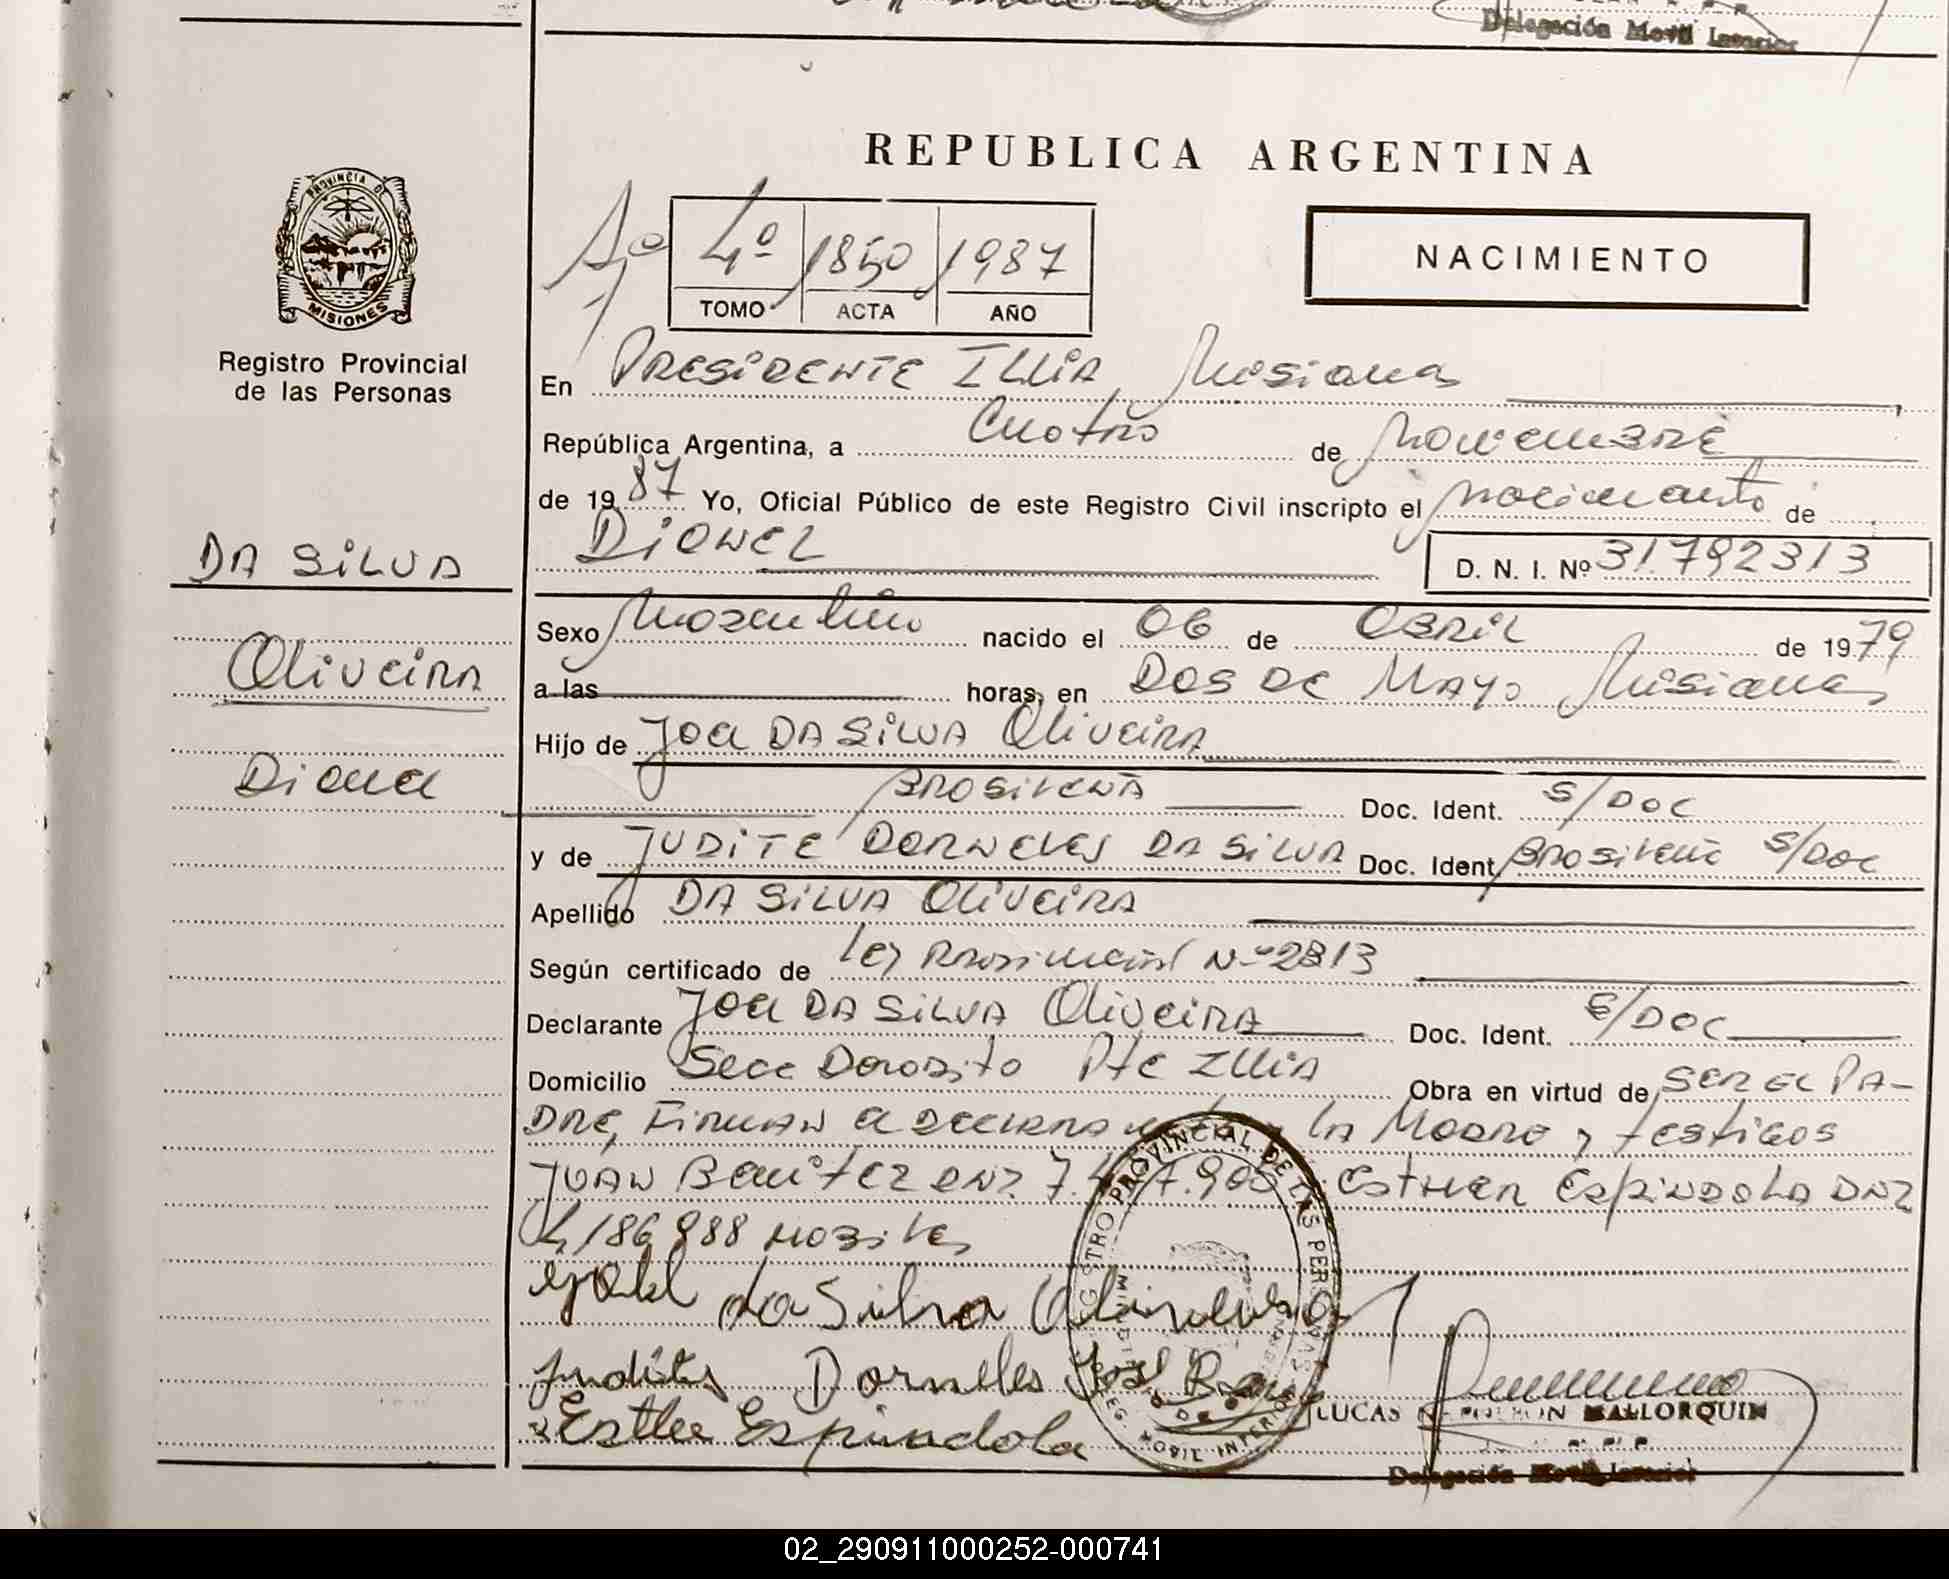 Delegación Movil Interior
REPUBLICA ARGENTINA
PROVINCIA DE
MISIONES
Registro Provincial
de las Personas
4º 1850 1987
TOMO ACTA AÑO
NACIMIENTO
En PRESIDENTE ILLIA, Misiones
República Argentina, a Cuatro de Noviembre
de 1987 Yo, Oficial Público de este Registro Civil inscripto el nacimiento de
DIONEL D. N. I. Nº 31.792313
DA SILVA
Oliveira
Dionel
Sexo Masculino nacido el 06 de Abril de 1979
a las horas, en DOS DE MAYO Misiones
Hijo de Joel DA SILVA Oliveira
Brasileña Doc. Ident. S/DOC
y de JUDITE DORNELES DA SILVA Doc. Ident. Brasileña S/DOC
Apellido DA SILVA Oliveira
Según certificado de Ley Provincial Nº 2813
Declarante Joel DA SILVA Oliveira Doc. Ident. S/DOC
Domicilio Pte Illia Obra en virtud de SER EL PA-
DRE, Firman el Declarante y la Madre y testigos
JUAN Benitez DNI. ESTHER ESPINDOLA DNI
4,186,988
Joel da Silva Oliveira
Judite Dorneles
Esther Espindola
REGISTRO PROVINCIAL DE LAS PERSONAS
LUCAS MALLORQUIN
Delegación Movil Interior
02_290911000252-000741